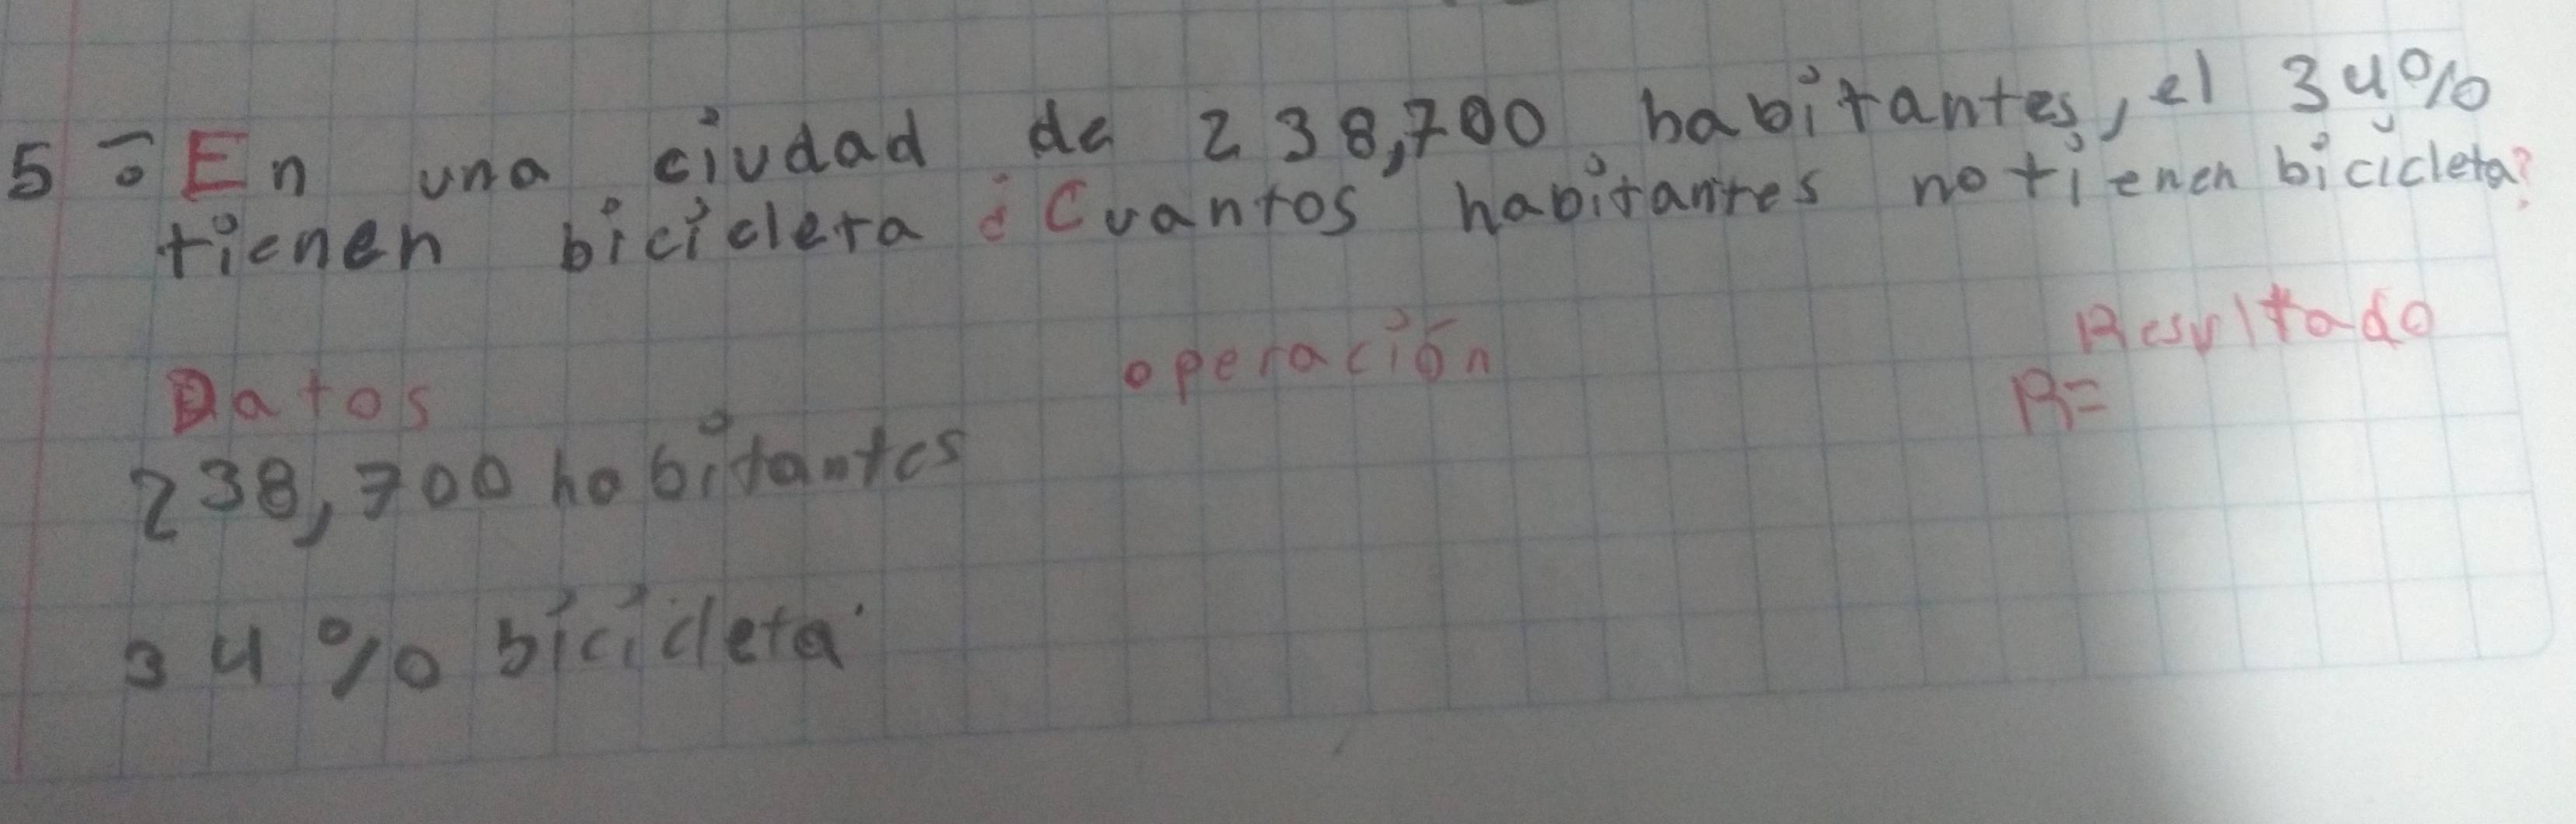 5- En una ciudad de 238,700 habitantes, el 34%
tienen bicicleta ¿Cuantos habitantes no tienen bicicleta?
Datos operación Resultado
R=
238,700 habitantes
34% bicicleta